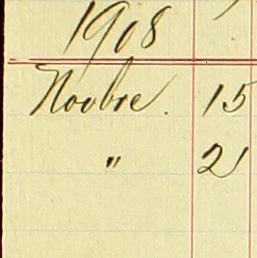 1908
Novbre. 15
" 21